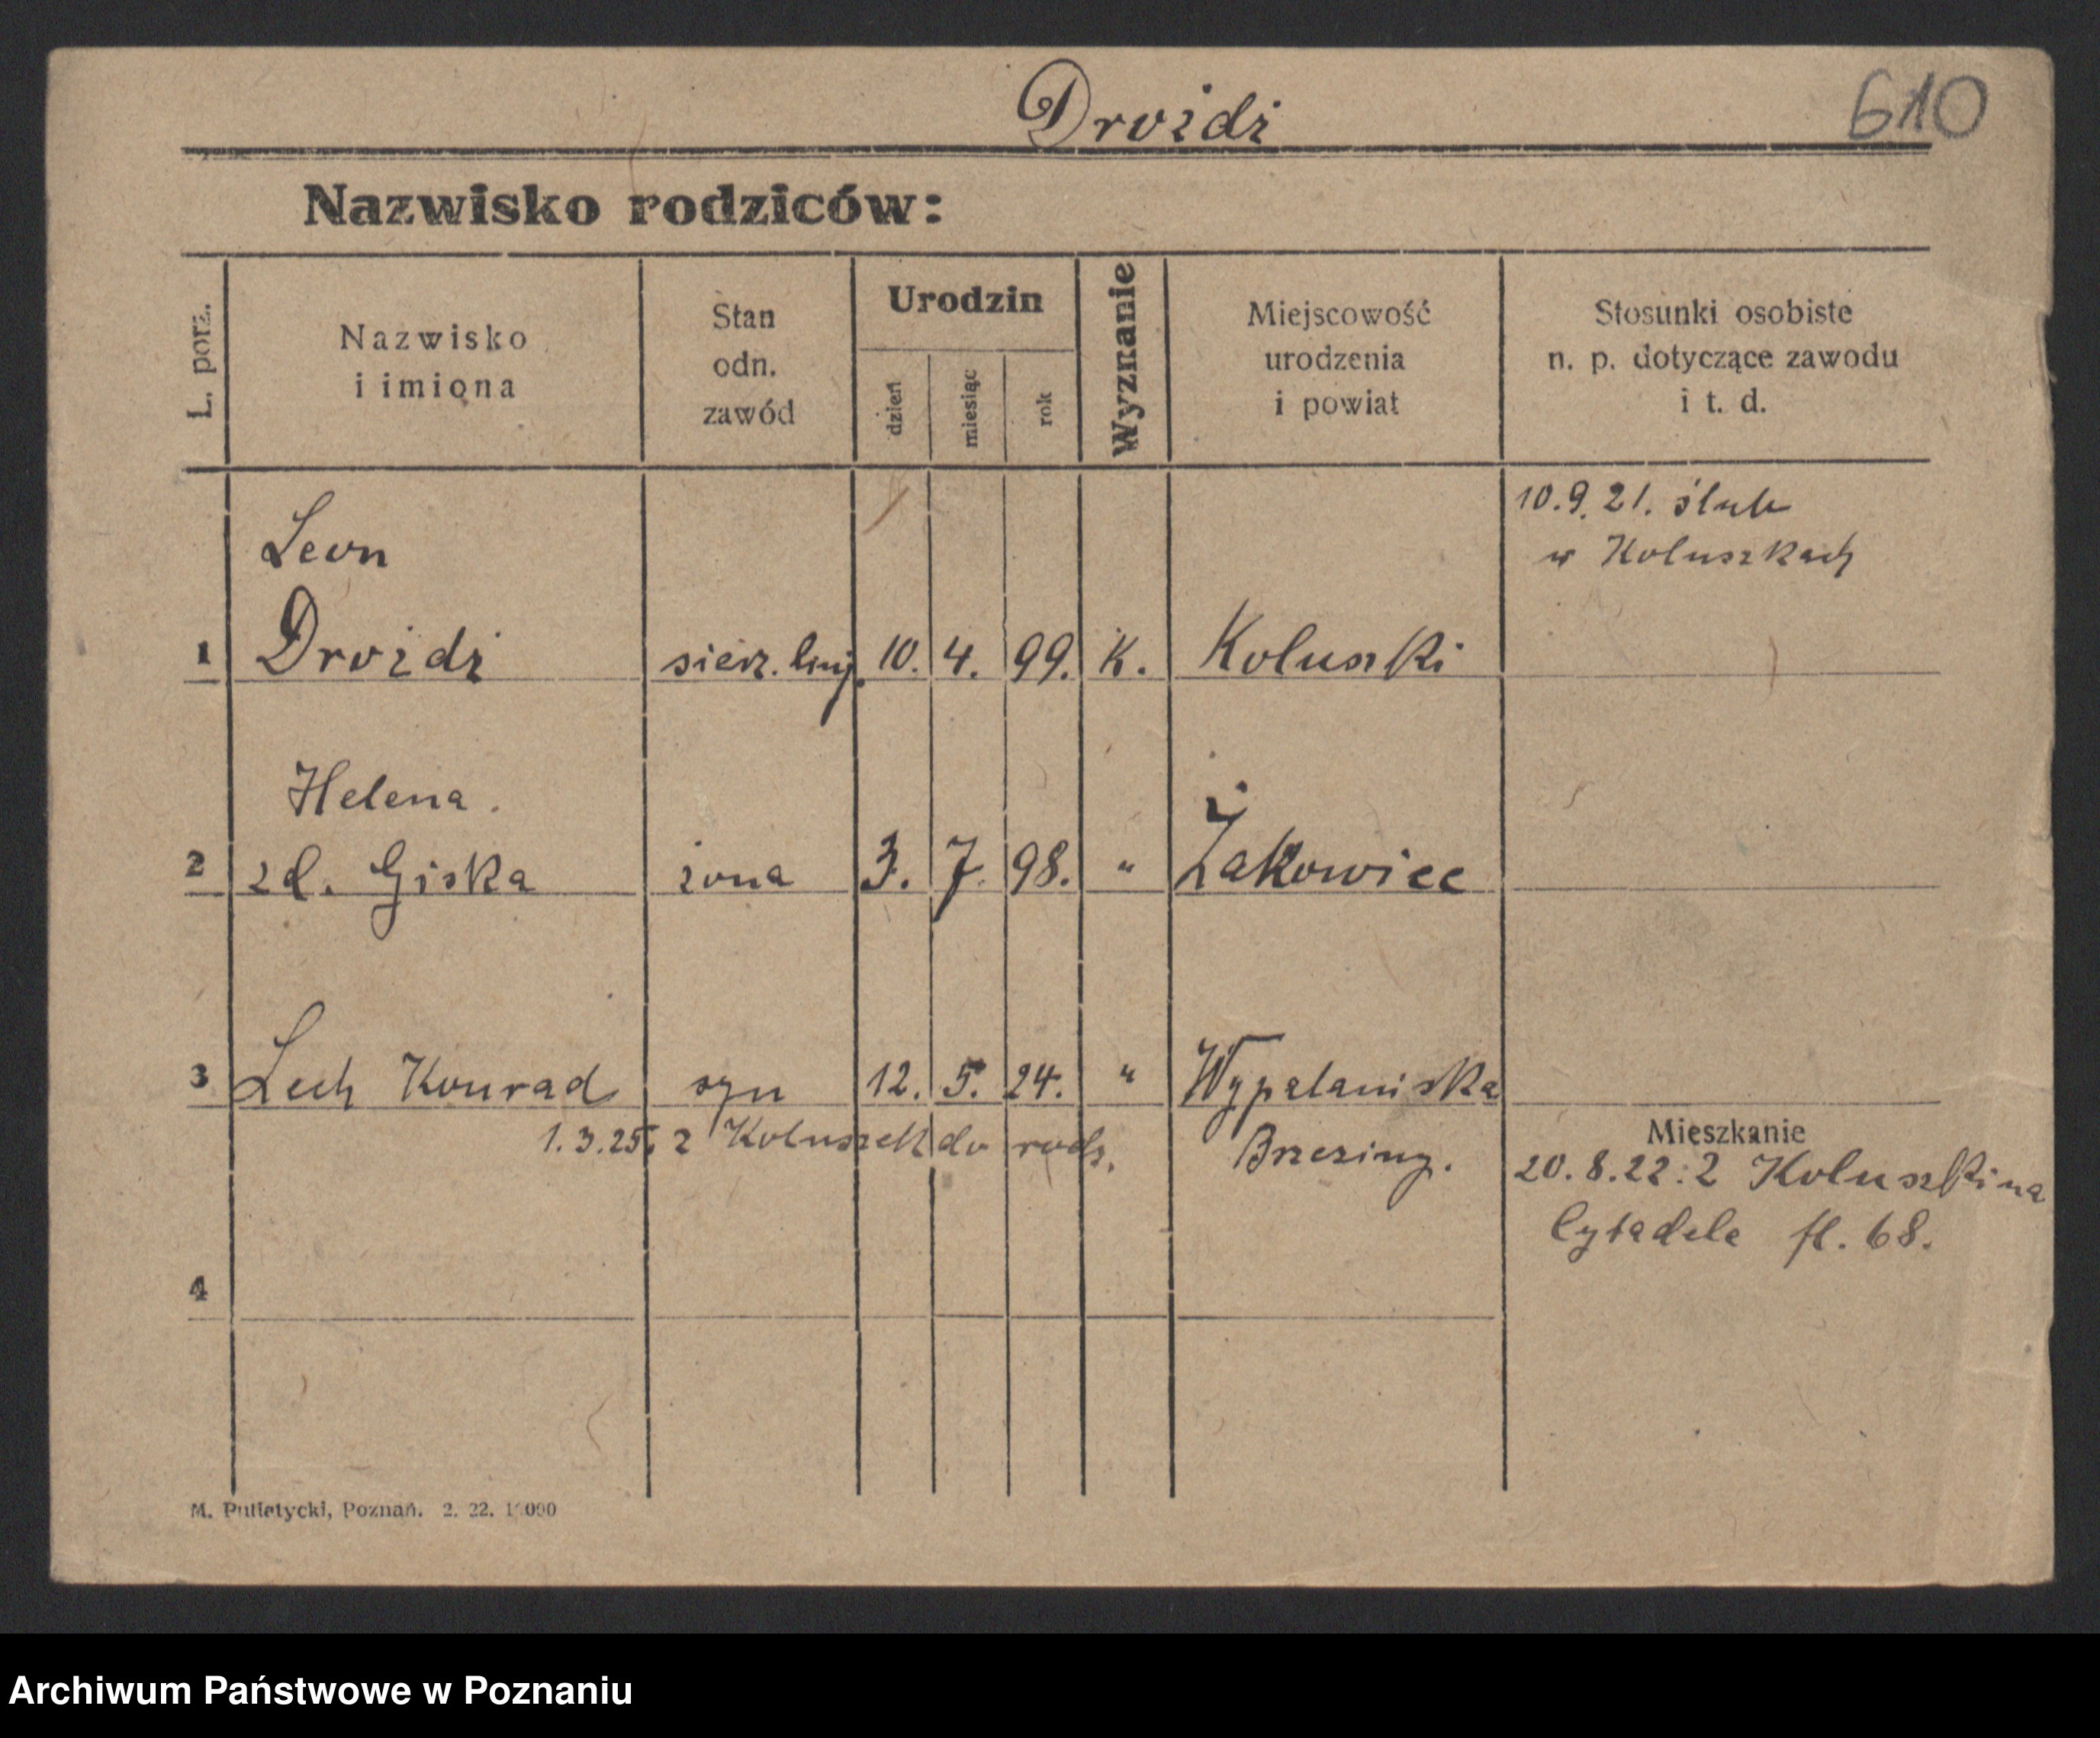 Drozdz
610
Nazwisko rodziców:
L. porz.
Nazwisko
i imiona
Stan
odn.
zawód
Urodzin
dzień
miesiąc
rok
Wyznanie
Miejscowość
urodzenia
i powiat
Stosunki osobiste
n. p. dotyczące zawodu
i t. d.
10.9.21. ślub
w Koluszkach
Leon
1 Drozdz sierz. 10. 4. 99. K. Koluszki
Helena.
2 zd. Giska żona 3. 7. 98. " Żakowiec
3 Lech Konrad syn 12. 5. 24. "
1.3.25. z Koluszek do rodz. Brzeziny.
Mieszkanie
20.8.22. z Koluszki na
Cytadela fl. 68.
4
M. Putiatycki, Poznań. 2. 22.
Archiwum Państwowe w Poznaniu